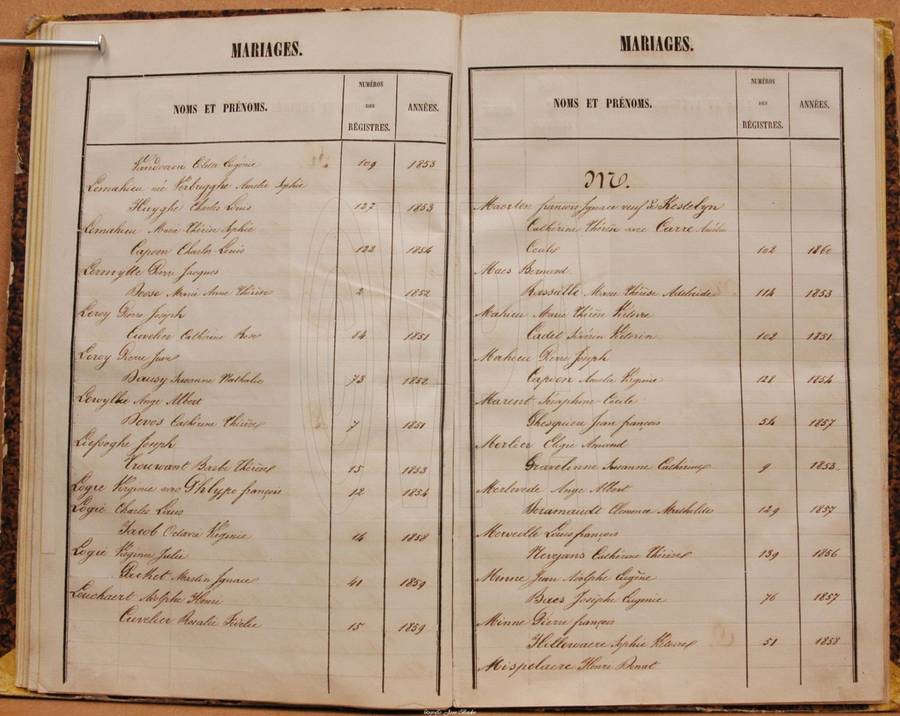 MARIAGES.
NOMS ET PRÉNOMS. NUMÉROS DES RÉGISTRES. ANNÉES.
Eugénie 109 1853
Lemahieu née Verbrugghe Amelie Sophie
Huyghe Charles Louis 127 1853
Lemahieu Marie Thérèse Sophie
Capoen Charles Louis 122 1854
Lermytte Pierre Jacques
Bosse Marie Anne Thérèse 2 1852
Leroy Pierre Joseph
Cuvelier Cathérine Rose 84 1851
Leroy Pierre Jean
Beausy Susanne Nathalie 73 1852
Lewylle Ange Albert
Devos Cathérine Thérèse 7 1851
Liefooghe Joseph
Trouwant Barbe Thérèse 15 1853
Logie Virginie avec Ghlype françois 12 1854
Logie Charles Louis
Jacob Octavie Virginie 14 1858
Logie Virginie Julie
Gechet Martin Ignace 41 1859
Louchaert Adolphe Henri
Cuvelier Rosalie 15 1859
MARIAGES.
NOMS ET PRÉNOMS. NUMÉROS DES RÉGISTRES. ANNÉES.
M.
Maerten françois Ignace veuf de Kestelyn
Cathérine Thérèse avec Carré Amélie
Cécile 102 1860
Maes Bernard
Rassalle Marie Thérèse Adelaïde 114 1853
Mahieu Marie Thérèse Victoire
Cadet Séverin 102 1851
Mahieu Pierre Joseph
Capoen Amelie Virginie 128 1854
Marent Josephine Cécile
Ghesquieu Jean françois 54 1857
Merlier Eligie Amand
Gravelinne Susanne Cathérine 9 1852
Merlevede Ange Albert
Beramaudt Clemence Mathilde 129 1857
Merveille Louis françois
Neversans Cathérine Thérèse 139 1856
Minne Jean Adolphe Eugène
Baes Josèphe Eugenie 76 1857
Minne Pierre françois
Hillewaere Sophie Victoire 51 1858
Mispelaere Henri Donat